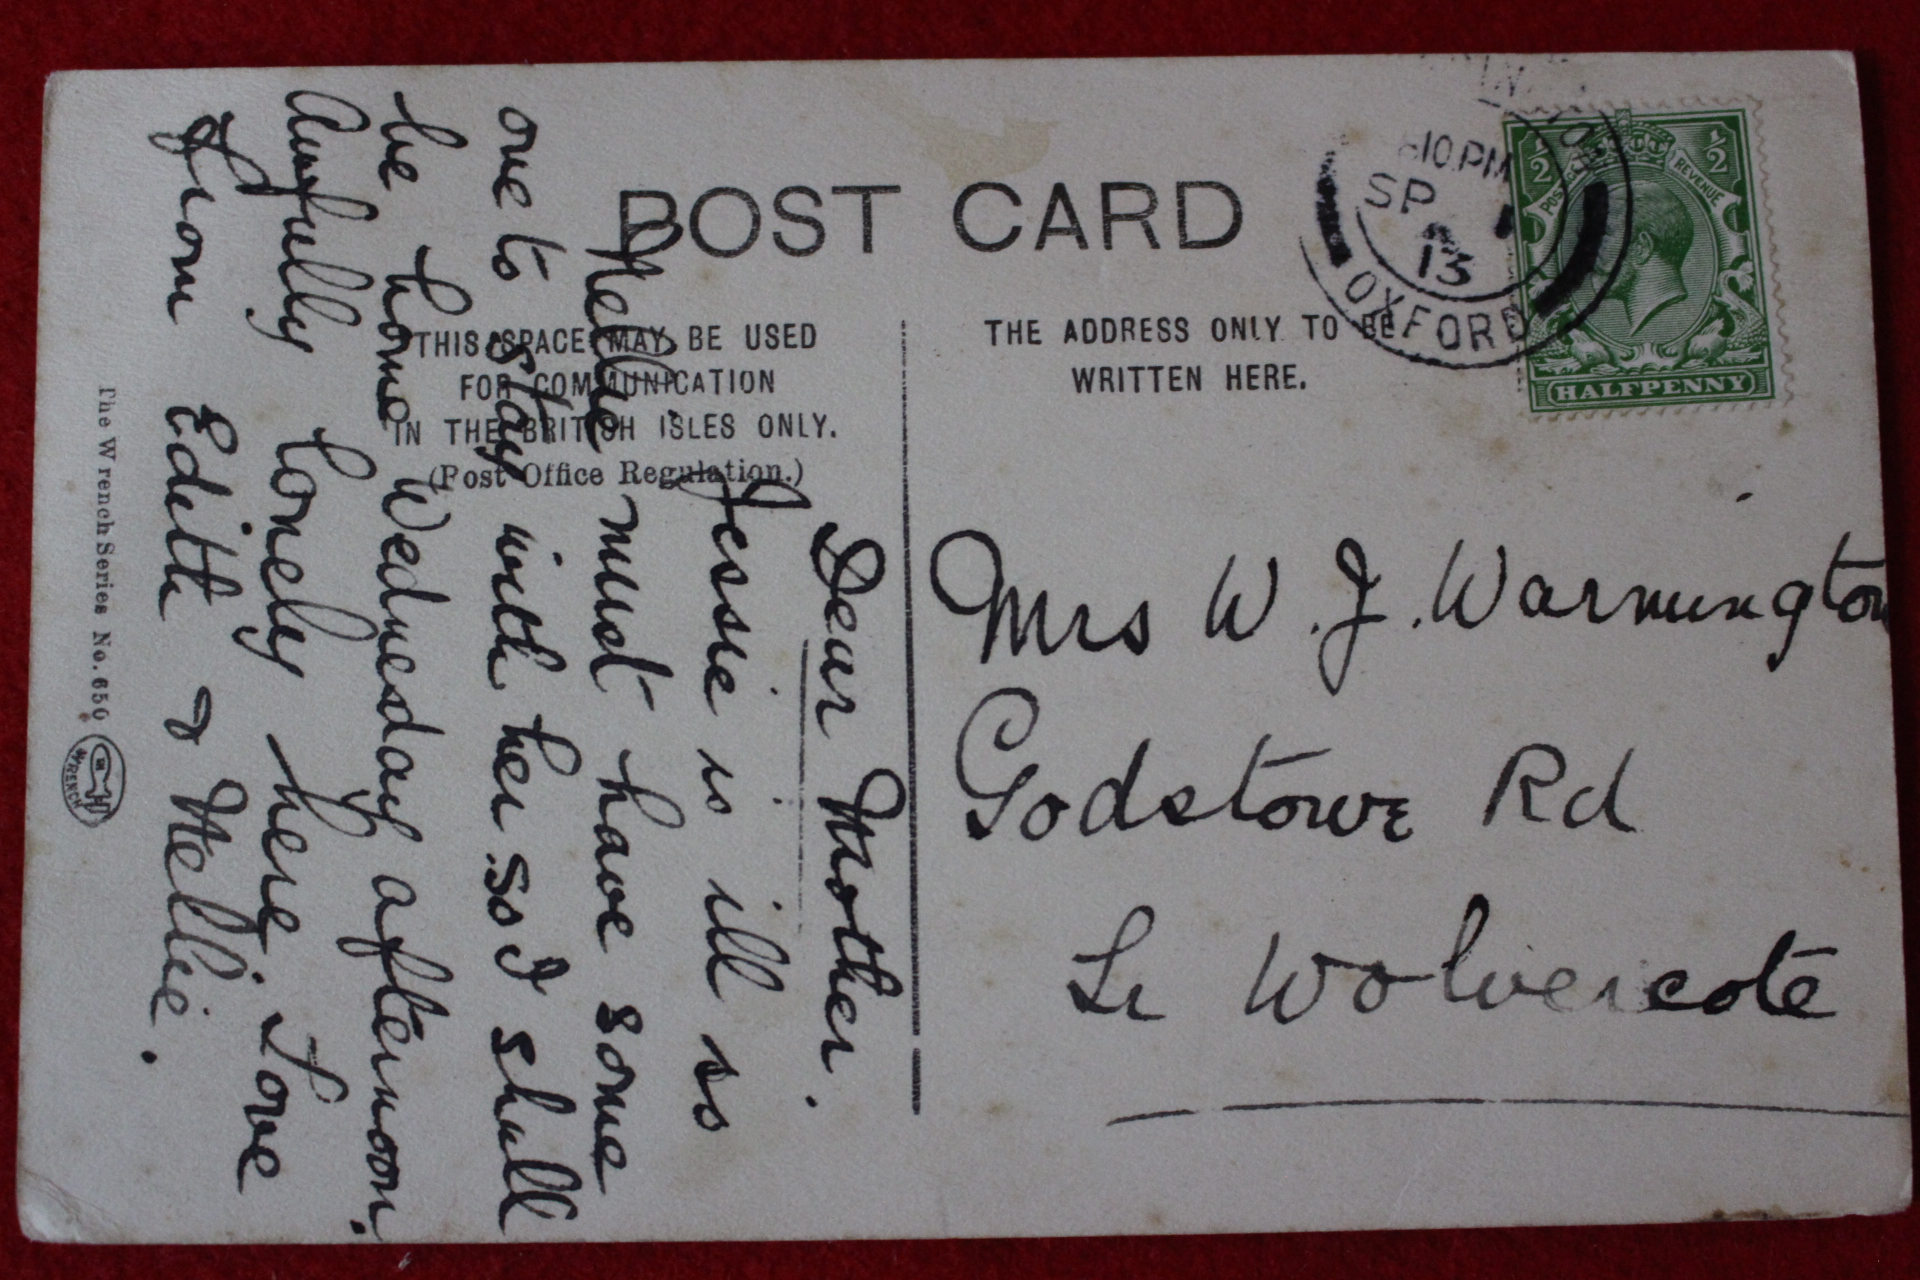 POST CARD
THIS SPACE MAY BE USED
FOR COMMUNICATION
IN THE BRITISH ISLES ONLY.
(Post Office Regulation.)
THE ADDRESS ONLY TO BE
WRITTEN HERE.
10 PM
SP
13
OXFORD
1/2 1/2
POSTAGE REVENUE
HALFPENNY
Mrs W. J. Warmington
Godstowe Rd
Lr Wolvercote
Dear Mother.
Jessie is ill so
Nellie must have some
one to stay with her so I shall
be home Wednesday afternoon.
Awfully lonely here. Love
from Edith & Nellie.
The Wrench Series No. 650
WRENCH